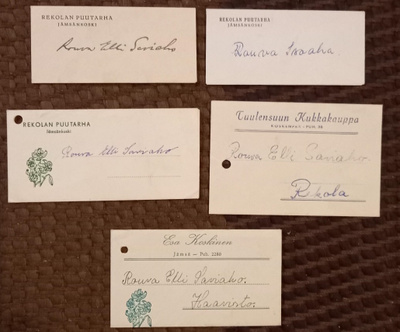 REKOLAN PUUTARHA
JÄMSÄNKOSKI
Rouva Elli Saviaho
REKOLAN PUUTARHA
JÄMSÄNKOSKI
Rouva
REKOLAN PUUTARHA
Jämsänkoski
Rouva Elli Saviaho
Tuulensuun Kukkakauppa
Puh.
Rouva Elli Saviaho.
Rekola
Esa Koskinen
Jämsä — Puh. 2280
Rouva Elli Saviaho.
Haavisto.